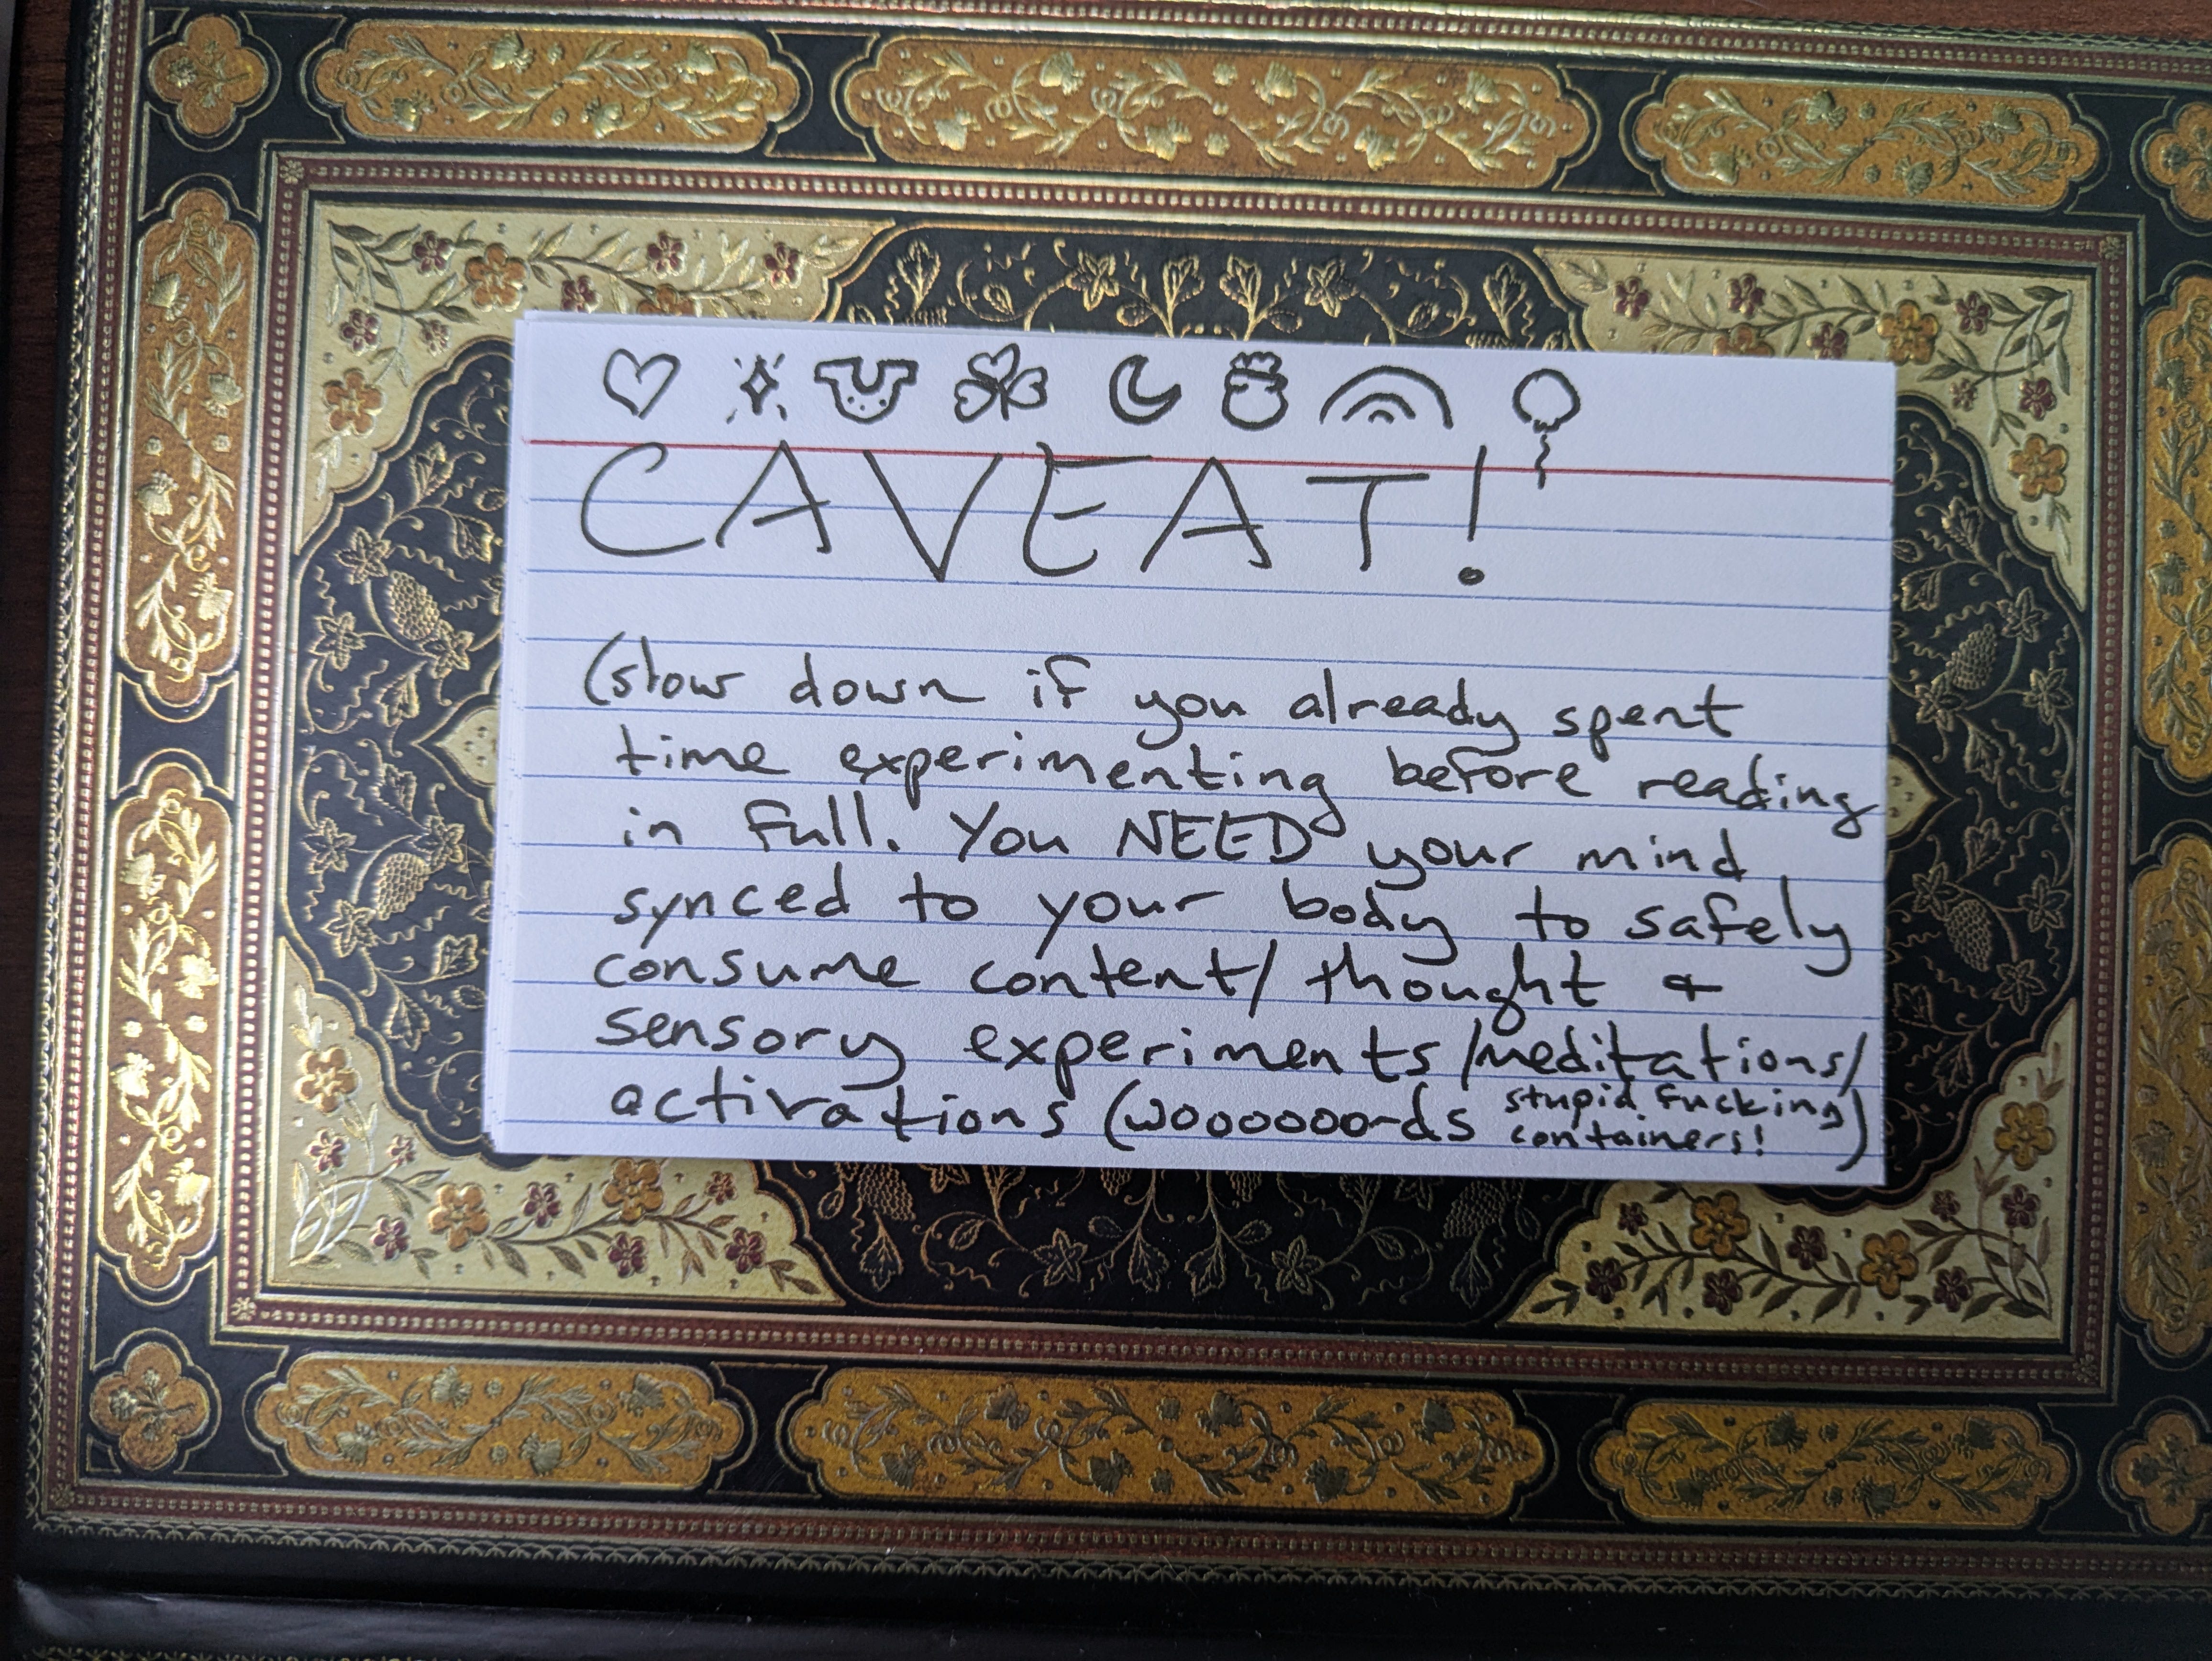 CAVEAT!
(slow down if you already spent
time experimenting before reading
in full. You NEED your mind
synced to your body to safely
consume content/ thought &
sensory experiments/meditations/
activations (wooooooords stupid fucking
containers!)